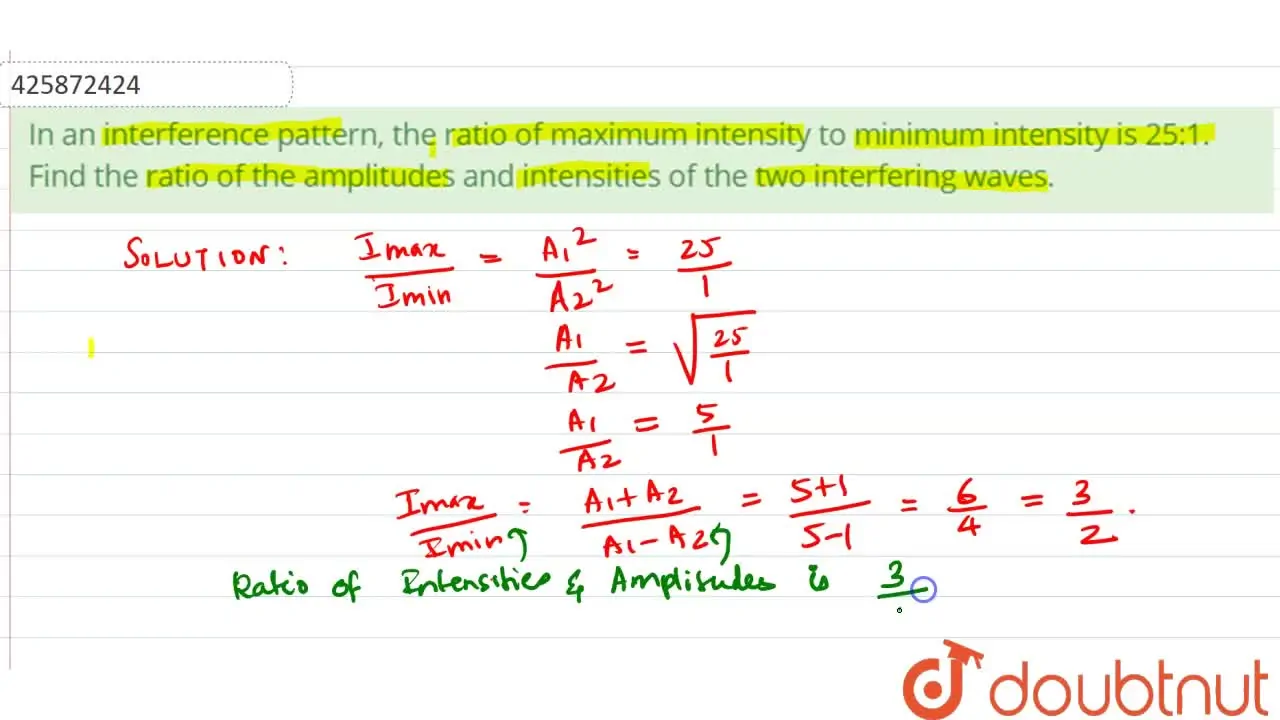 425872424
In an interference pattern, the ratio of maximum intensity to minimum intensity is 25:1.
Find the ratio of the amplitudes and intensities of the two interfering waves.
SOLUTION: Imax/Imin = A1²/A2² = 25/1
A1/A2 = √(25/1)
A1/A2 = 5/1
Imax/Imin = A1+A2/A1-A2 = 5+1/5-1 = 6/4 = 3/2.
Ratio of Intensities & Amplitudes is 3/
doubtnut